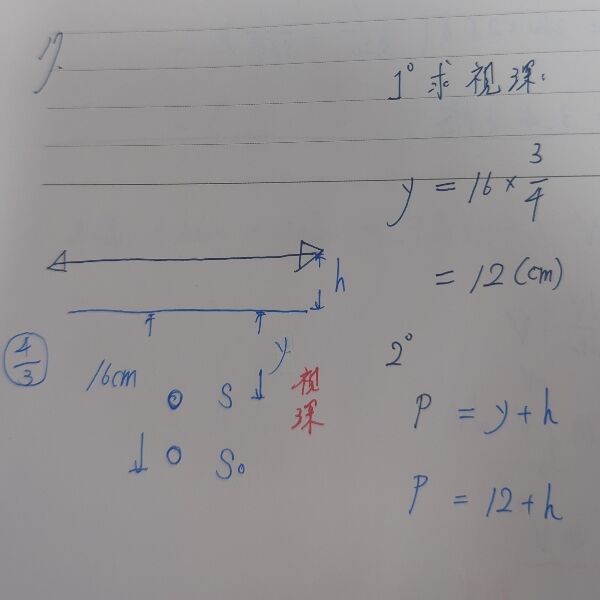 17.
1° 求視深:
y = 16 × 3/4
= 12 (cm)
h
4/3
16cm
y
S
視深
S₀
2°
P = y + h
P = 12 + h